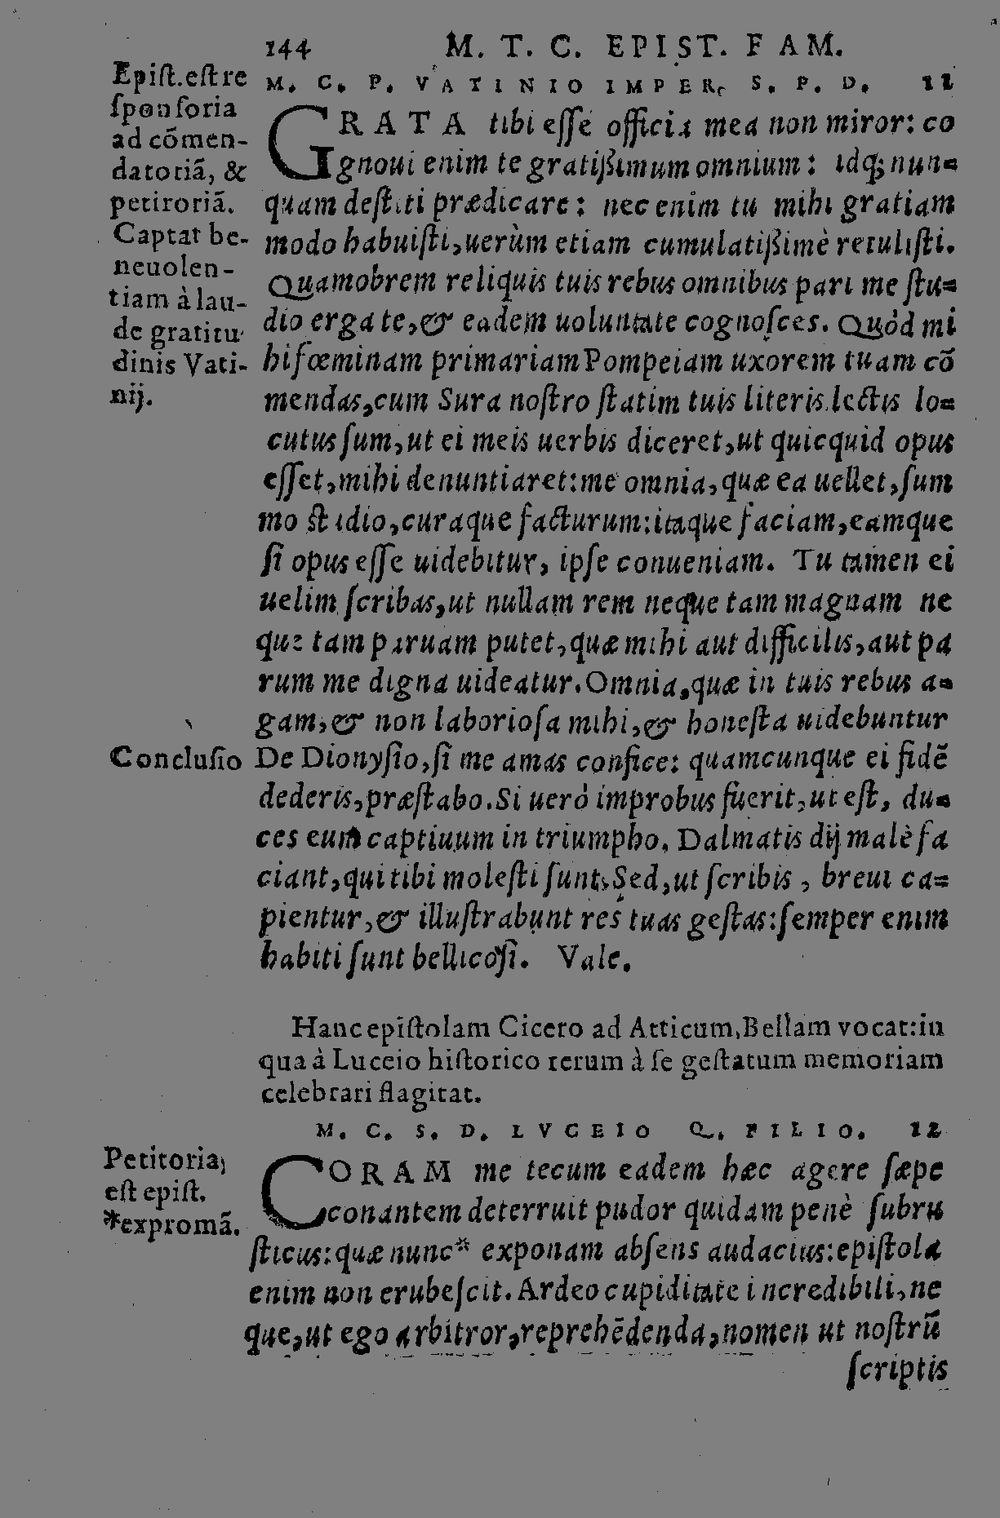 144 M. T. C. EPIST. FAM.
M. C. P. VATINIO IMPER. S. P. D. 11
Epiſt. eſt re
ſponſoria
ad cõmen-
datoriã, &
petitoriã.
Captat be-
neuolen-
tiam à lau-
de gratitu
dinis Vati-
nij.
GRATA tibi eſſe officia mea non miror: co
gnoui enim te gratiſsimum omnium: idq; nun-
quam deſtiti prædicare: nec enim tu mihi gratiam
modo habuiſti, uerùm etiam cumulatiſsimè retuliſti.
Quamobrem reliquis tuis rebus omnibus pari me ſtu-
dio erga te, & eadem uoluntate cognoſces. Quòd mi
hi fœminam primariam Pompeiam uxorem tuam cõ
mendas, cum Sura noſtro ſtatim tuis literis lectis lo-
cutus ſum, ut ei meis uerbis diceret, ut quicquid opus
eſſet, mihi denuntiaret: me omnia, quæ ea uellet, ſum
mo ſtudio, curaque facturum: itaque faciam, eamque
ſi opus eſſe uidebitur, ipſe conueniam. Tu tamen ei
uelim ſcribas, ut nullam rem neque tam magnam ne
que tam paruam putet, quæ mihi aut difficilis, aut pa
rum me digna uideatur. Omnia, quæ in tuis rebus a-
gam, & non laborioſa mihi, & honeſta uidebuntur
Concluſio
De Dionyſio, ſi me amas confice: quamcunque ei fidẽ
dederis, præſtabo. Si uerò improbus fuerit, ut eſt, du-
ces eum captiuum in triumpho. Dalmatis dij malè fa
ciant, qui tibi moleſti ſunt. Sed, ut ſcribis, breui ca-
pientur, & illuſtrabunt res tuas geſtas: ſemper enim
habiti ſunt bellicoſi. Vale.
Hanc epiſtolam Cicero ad Atticum, Bellam vocat: in
qua à Luceio hiſtorico rerum à ſe geſtatum memoriam
celebrari flagitat.
M. C. S. D. LVCEIO Q. FILIO. 12
Petitoria
eſt epiſt.
*expromã.
CORAM me tecum eadem hæc agere ſæpe
conantem deterruit pudor quidam penè ſubru
ſticus: quæ nunc* exponam abſens audacius: epiſtola
enim non erubeſcit. Ardeo cupiditate incredibili, ne
que, ut ego arbitror, reprehẽdenda, nomen ut noſtrũ
ſcriptis